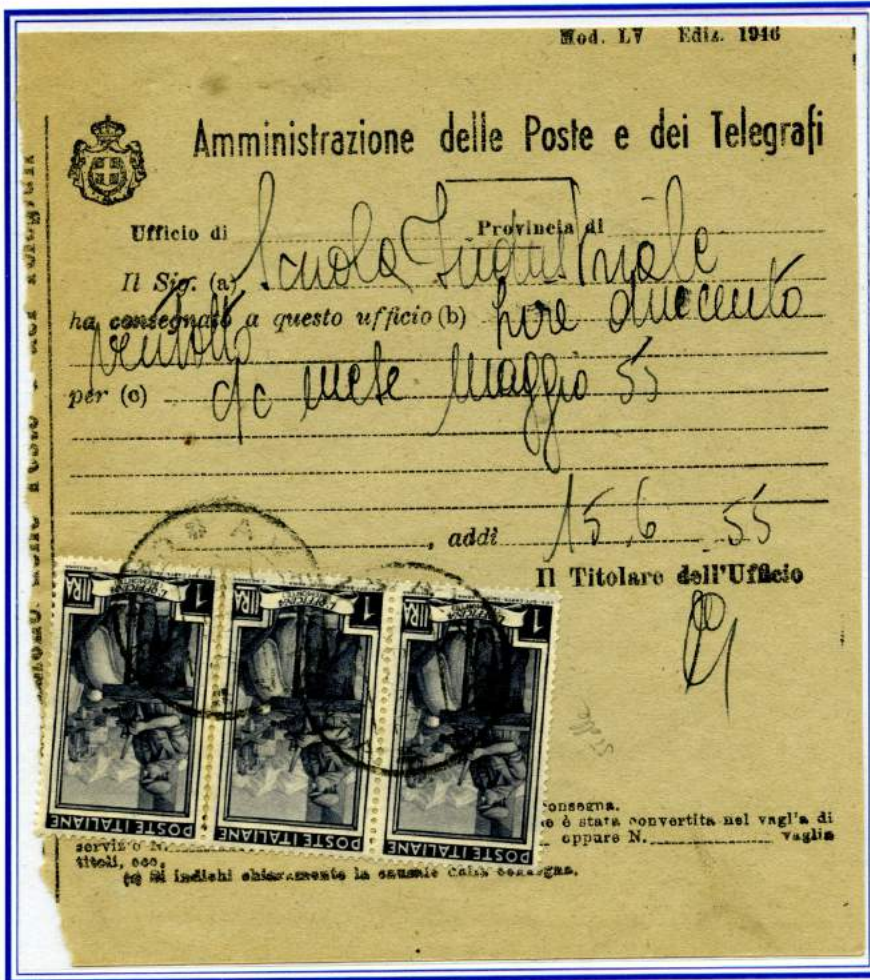 Mod. LV Ediz. 1946
Amministrazione delle Poste e dei Telegrafi
Ufficio di Provincia di
Il Sig. (a) Scuola Industriale
ha consegnato a questo ufficio (b) Lire duecento
ventotto
per (c) c/c mese Maggio 55
, addì 15.6.55
Il Titolare dell'Ufficio
1 LIRA L'OFFICINA
1 LIRA L'OFFICINA
1 LIRA L'OFFICINA
POSTE ITALIANE
POSTE ITALIANE
POSTE ITALIANE
consegna.
e è stata convertita nel vagl'a di
servizio N. oppure N. vaglia
titoli, ecc.
(c) Si indichi chiaramente la causale della consegna.